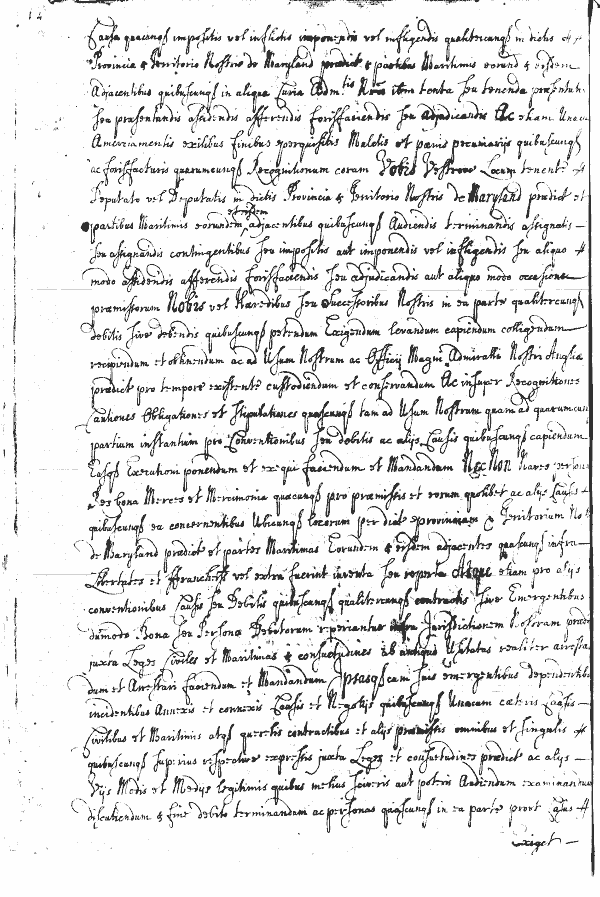 14
Causa quacunqꝫ impositis vel inflictis imponendis vel infligendis qualitercunqꝫ in dictis
Provincia & Territorio Nostris de Maryland predict & partibus Maritimis eorund & eisdem
Adjacentibus quibuscunqꝫ in aliqua Curia Adm tis Nræ ibm tenta seu tenenda præsentatis
seu præsentandis assidendis afferendis forisfaciendis seu adjudicandis Ac etiam Unacum
Amerciamentis exitibus finibus perquisitis Mulctis et pœnis pecuniarijs quibuscunqꝫ
ac forisfacturis quarumcunqꝫ Recognitionum coram Vobis Vestrove Locum tenente
Deputato vel Deputatis in dictis Provincia & Territorio Nostris de Maryland predict et
eisdem
partibus Maritimis eorundem adjacentibus quibuscunqꝫ Audiendis terminandis assignatis —
seu assignandis contingentibus seu impositis aut imponendis vel infligendis seu aliquo
modo assidendis afferendis forisfaciendis seu adjudicandis aut aliquo modo occasione
præmissorum Nobis vel Hæredibus seu Successoribus Nostris in ea parte qualitercunqꝫ
debitis sive debendis quibuscunqꝫ petendum Exigendum levandum capiendum colligendum
recipiendum et obtinendum ac ad Usum Nostrum ac Officij Magni Admiralli Nostri Angliæ
predict pro tempore existente custodiendum et conservandum Ac insuper Recognitiones
Cautiones Obligationes et Stipulationes quascunqꝫ tam ad Usum Nostrum quam ad quarumcunqꝫ
partium instantium pro Conventionibus seu debitis ac alijs Causis quibuscunqꝫ capiendum
Easqꝫ Executioni ponendum et exequi faciendum et Mandandum Nec Non Naves personas
Res bona Merces et Mercimonia quæcunqꝫ pro præmissis et eorum quolibet ac alijs Causis
quibuscunqꝫ ea concernentibus Ubicunqꝫ locorum per dict provinciam & Territorium Nost
de Maryland predict et partes Maritimas Eorundem & eisdem adjacentes quascunqꝫ infra
Libertates et ffranchesias vel extra fuerint inventa seu reperta Atque etiam pro alijs
conventionibus Causis seu Debitis quibuscunqꝫ qualitercunqꝫ contractis sive Emergentibus
dumodo Bona seu Persona Debitorum reperiantur infra Jurisdictionem Nostram præd
juxta Leges Civiles et Maritimas & consuetudines ab antiquo Usitatas realiter arrestan
dum et Arrestari faciendum et Mandandum Ipsasqꝫ cum suis emergentibus dependentibus
incidentibus Annexis et connexis Causis et Negotijs quibuscunqꝫ Unacum cæteris Causis —
Civilibus et Maritimis atqꝫ querelis contractibus et alijs præmissis omnibus et singulis
quibuscunqꝫ superius respective expressis juxta Leges et consuetudines predict ac alijs —
Vijs Modis et Medijs legitimis quibus melius sciveris aut poteris Audiendum examinandum
discutiendum & fine debito terminandum ac personas quascunqꝫ in ea parte prout Casus
Exiget —